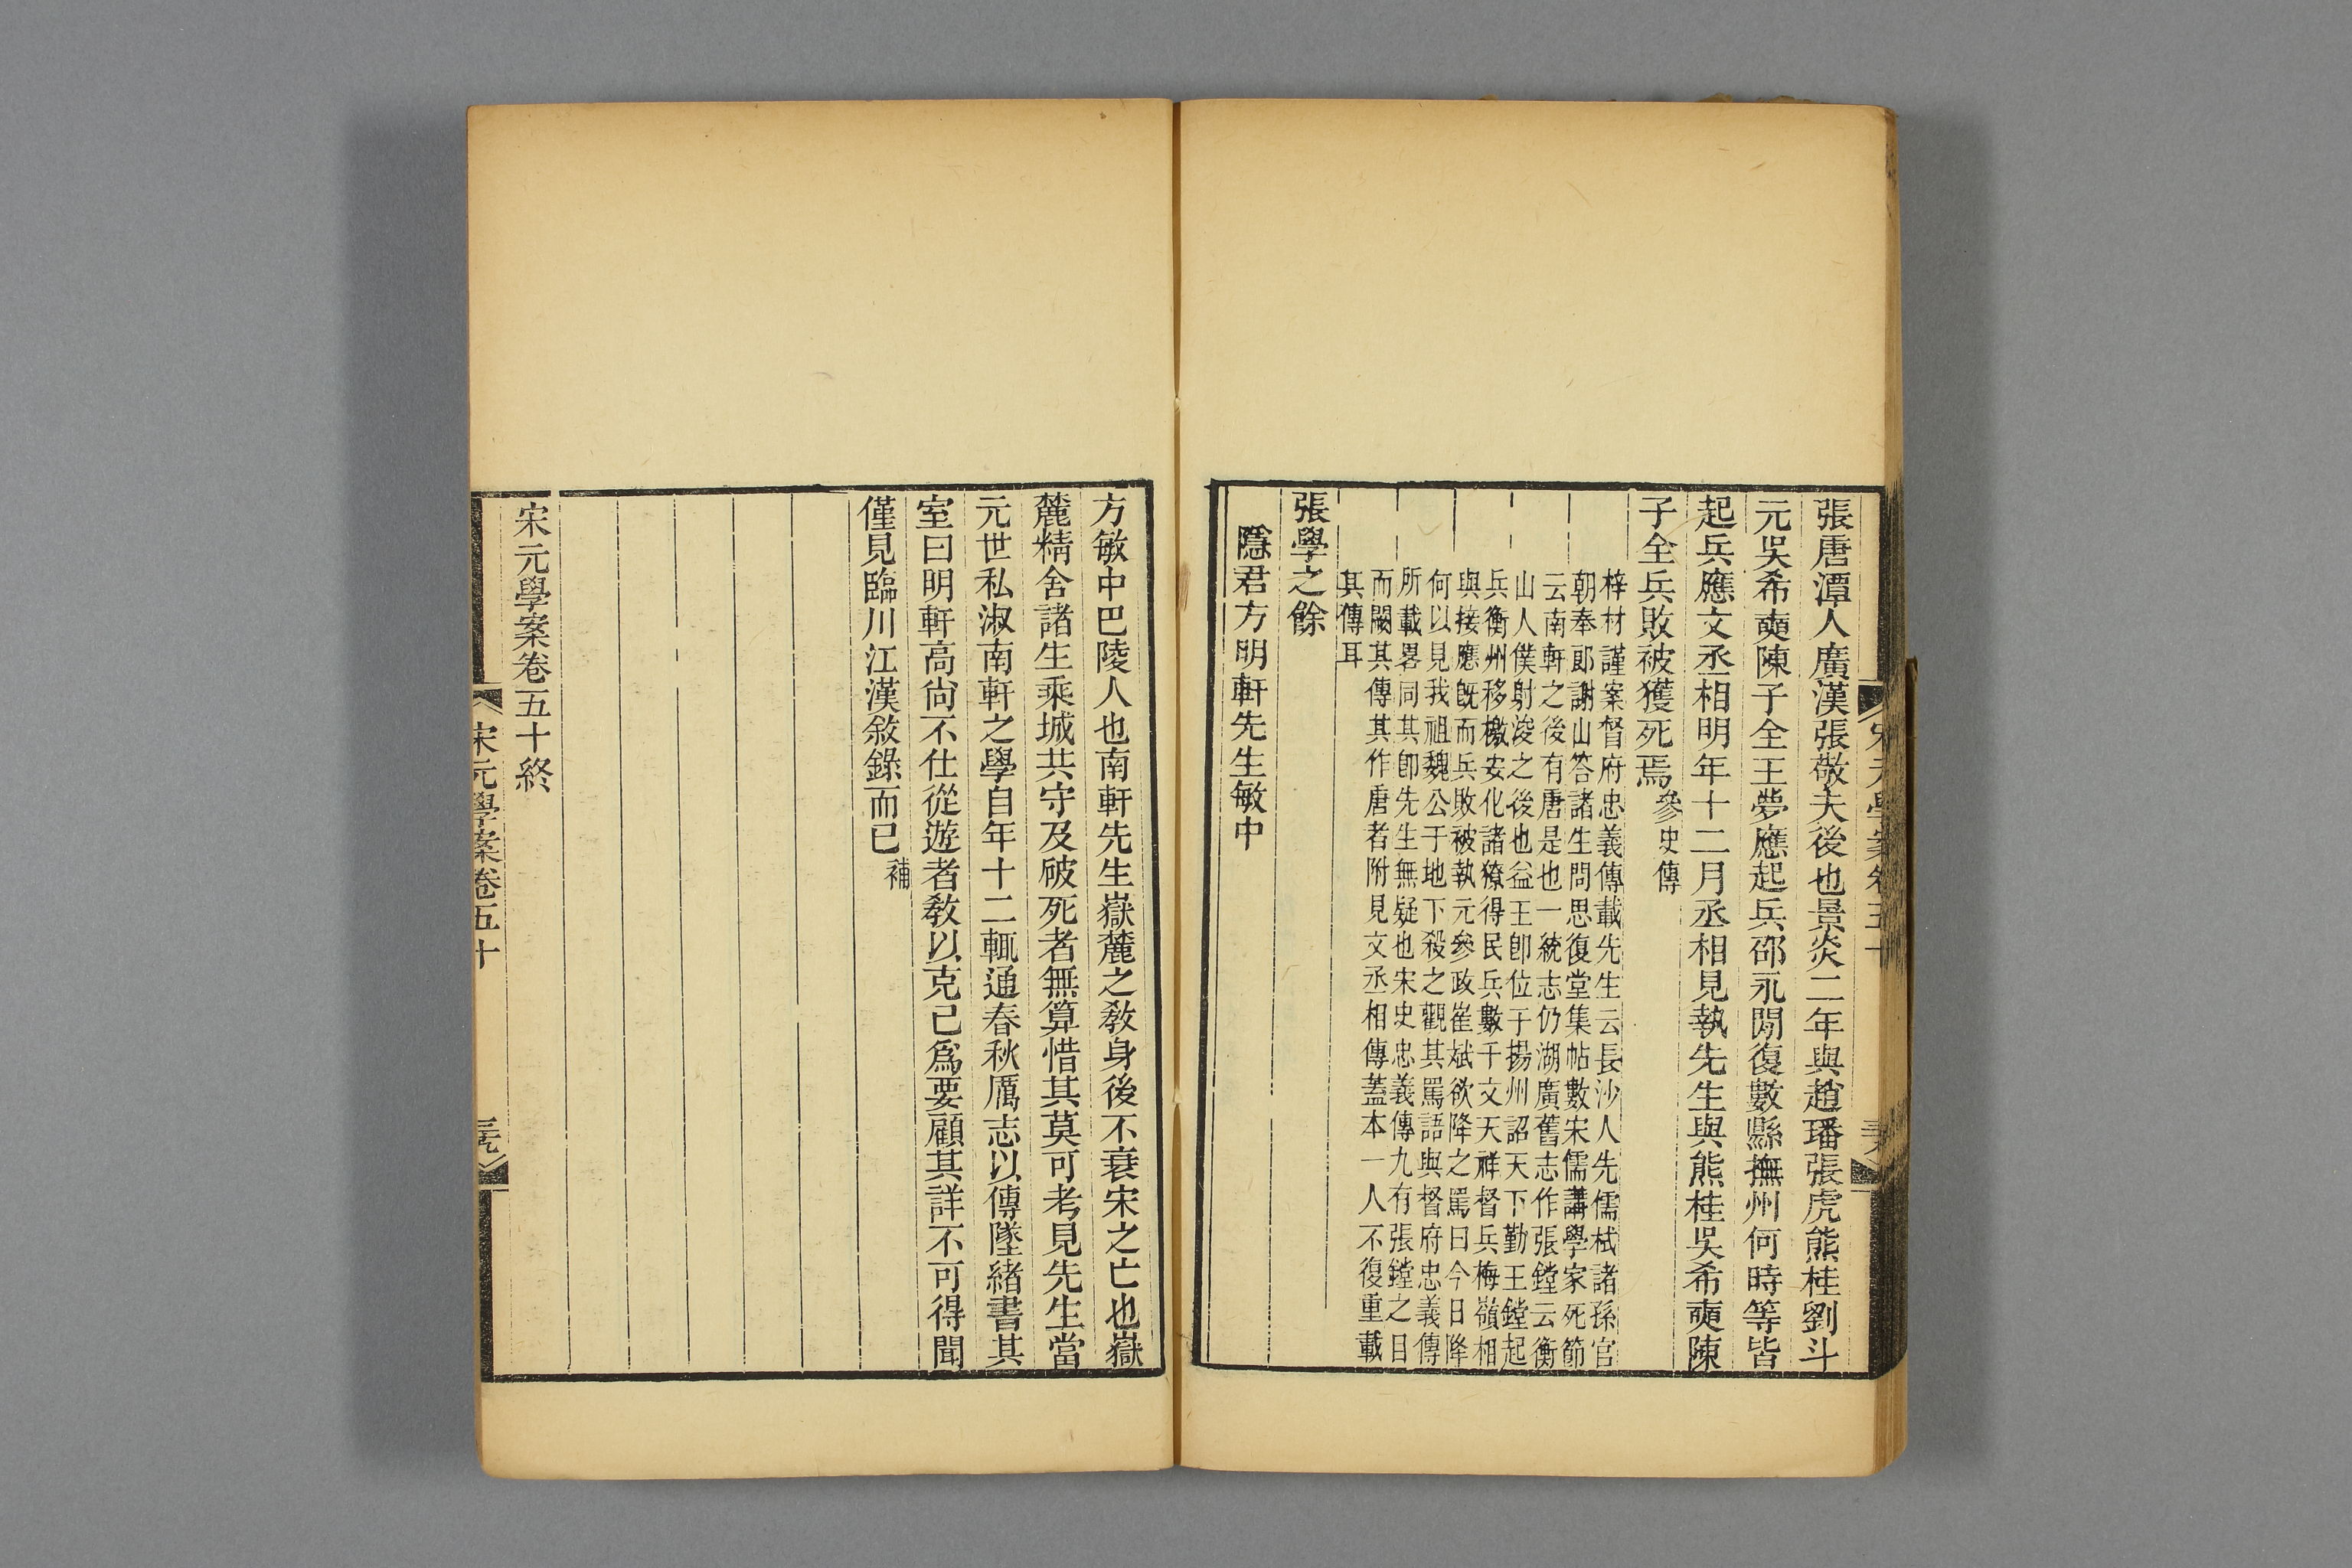 張唐潭人廣漢張敬夫後也景炎二年與趙璠張虎熊桂劉斗
元吳希奭陳子全王夢應起兵邵永閒復數縣撫州何時等皆
起兵應文丞相明年十二月丞相見執先生與熊桂吳希奭陳
子全兵敗被獲死焉參史傳
梓材謹案督府忠義傳載先生云長沙人先儒栻諸孫官
朝奉郎謝山答諸生問思復堂集帖數宋儒講學家死節
云南軒之後有唐是也一統志仍湖廣舊志作張鏜云衡
山人僕射浚之後也益王卽位于揚州詔天下勤王鏜起
兵衡州移檄安化諸獠得民兵數千文天祥督兵梅嶺相
與接應旣而兵敗被執元參政崔斌欲降之罵曰今日降
何以見我祖魏公于地下殺之觀其罵語與督府忠義傳
所載畧同其卽先生無疑也宋史忠義傳九有張鏜之目
而闕其傳其作唐者附見文丞相傳蓋本一人不復重載
其傳耳
張學之餘
隱君方明軒先生敏中
方敏中巴陵人也南軒先生嶽麓之敎身後不衰宋之亡也嶽
麓精舍諸生乘城共守及破死者無算惜其莫可考見先生當
元世私淑南軒之學自年十二輒通春秋厲志以傳墜緖書其
室曰明軒高尙不仕從遊者敎以克己爲要顧其詳不可得聞
僅見臨川江漢敘錄而已補
宋元學案卷五十終
宋元學案卷五十